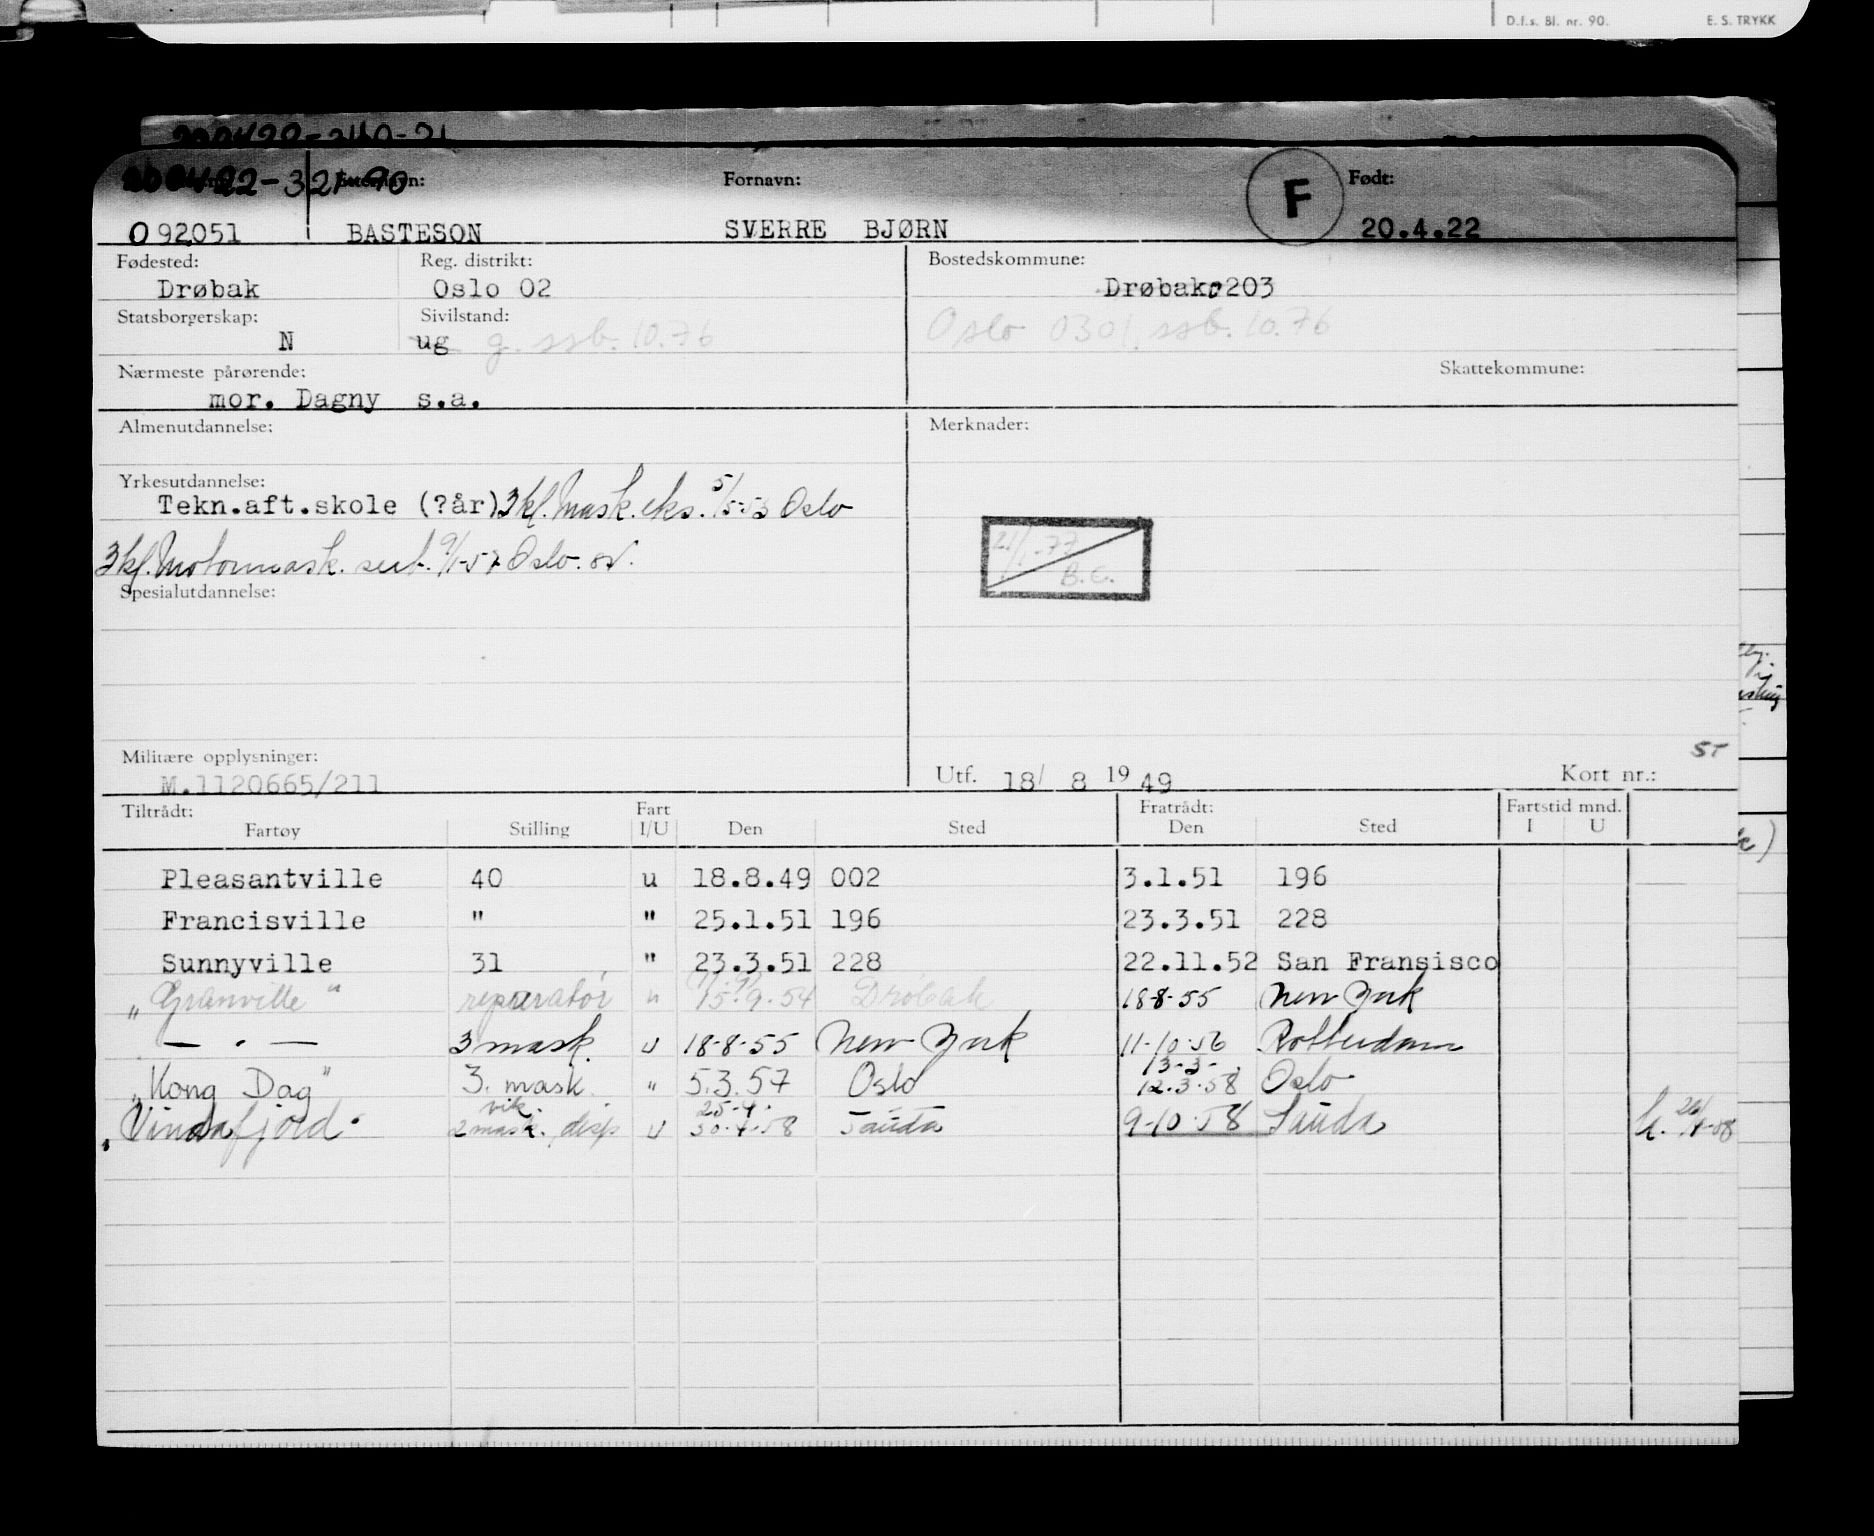 D.f.s. Bl. nr. 90. E. S. TRYKK
200422-32190
Fornavn: F Født:
092051 BASTESON SVERRE BJØRN 20.4.22
Fødested: Reg. distrikt: Bostedskommune:
Drøbak Oslo 02 Drøbak 0203
Statsborgerskap: Sivilstand:
N ug g. ssb. 10.76 Oslo 0301. ssb. 10.76
Nærmeste pårørende: Skattekommune:
mor. Dagny s.a.
Almenutdannelse: Merknader:
Yrkesutdannelse:
Tekn.aft.skole (?år) 3kl. Mask. eks. 5/5-53 Oslo
3kl. Motormask. sert. 9/1-57 Oslo.
21/1-77
B.E.
Spesialutdannelse:
ST
Militære opplysninger:
M.1120665/211
Utf. 18/ 8 19 49 Kort nr.:
Tiltrådt: Fart Fratrådt: Fartstid mnd.
Fartøy Stilling I/U Den Sted Den Sted I U
Pleasantville 40 u 18.8.49 002 3.1.51 196
Francisville " " 25.1.51 196 23.3.51 228
Sunnyville 31 " 23.3.51 228 22.11.52 San Fransisco
"Granville" reparatør " 15.9.54 Drøbak 18-8-55 New York
— . — 3 mask. u 18-8-55 New York 11-10-56 Rotterdam
13-3-
"Kong Dag" 3. mask " 5.3.57 Oslo 12.3.58 Oslo
vik. 25-4.
"Vindafjord" 2 mask. disp u 30-4-58 Sauda 9-10-58 Sauda